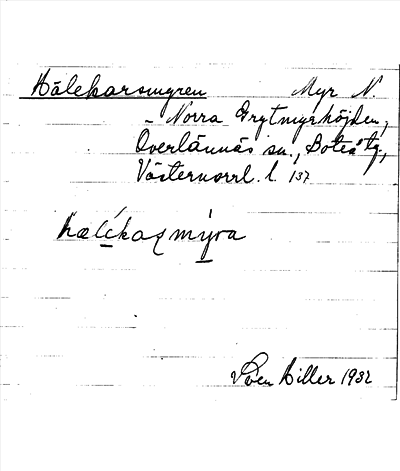 Hälekarsmyren Myr N.
– Norra Grytmyrhöjden,
Överlännäs sn., Boteå tg,
Västernorrl. l. 137
hælékaʐmýra
Sven Hiller 1932